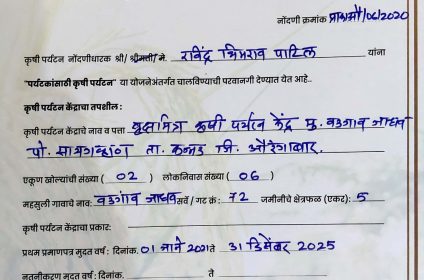 नोंदणी क्रमांक प्राकाऔ/06/2020
कृषी पर्यटन नोंदणीधारक श्री/ श्रीमती/ मे. रविंद्र भिमराव पाटिल यांना
"पर्यटकांसाठी कृषी पर्यटन" या योजनेअंतर्गत चालविण्याची परवानगी देण्यात येत आहे..
कृषी पर्यटन केंद्राचा तपशील :
कृषी पर्यटन केंद्राचे नाव व पत्ता वृक्षमित्र कृषी पर्यटन केंद्र मु. वडगाव जाधव
पो. सायगव्हाण ता. कन्नड जि. औरंगाबाद.
एकूण खोल्यांची संख्या ( 02 ) लोकनिवास संख्या ( 06 )
महसुली गावाचे नाव: वडगांव जाधव सर्वे / गट क्रं : 72 जमीनीचे क्षेत्रफळ (एकर): 5
कृषी पर्यटन केंद्राचा प्रकार:
प्रथम प्रमाणपत्र मुदत वर्ष : दिनांक. 01 जाने 2021 ते 31 डिसेंबर 2025
नुतनीकरण मुदत वर्ष : दिनांक. ते